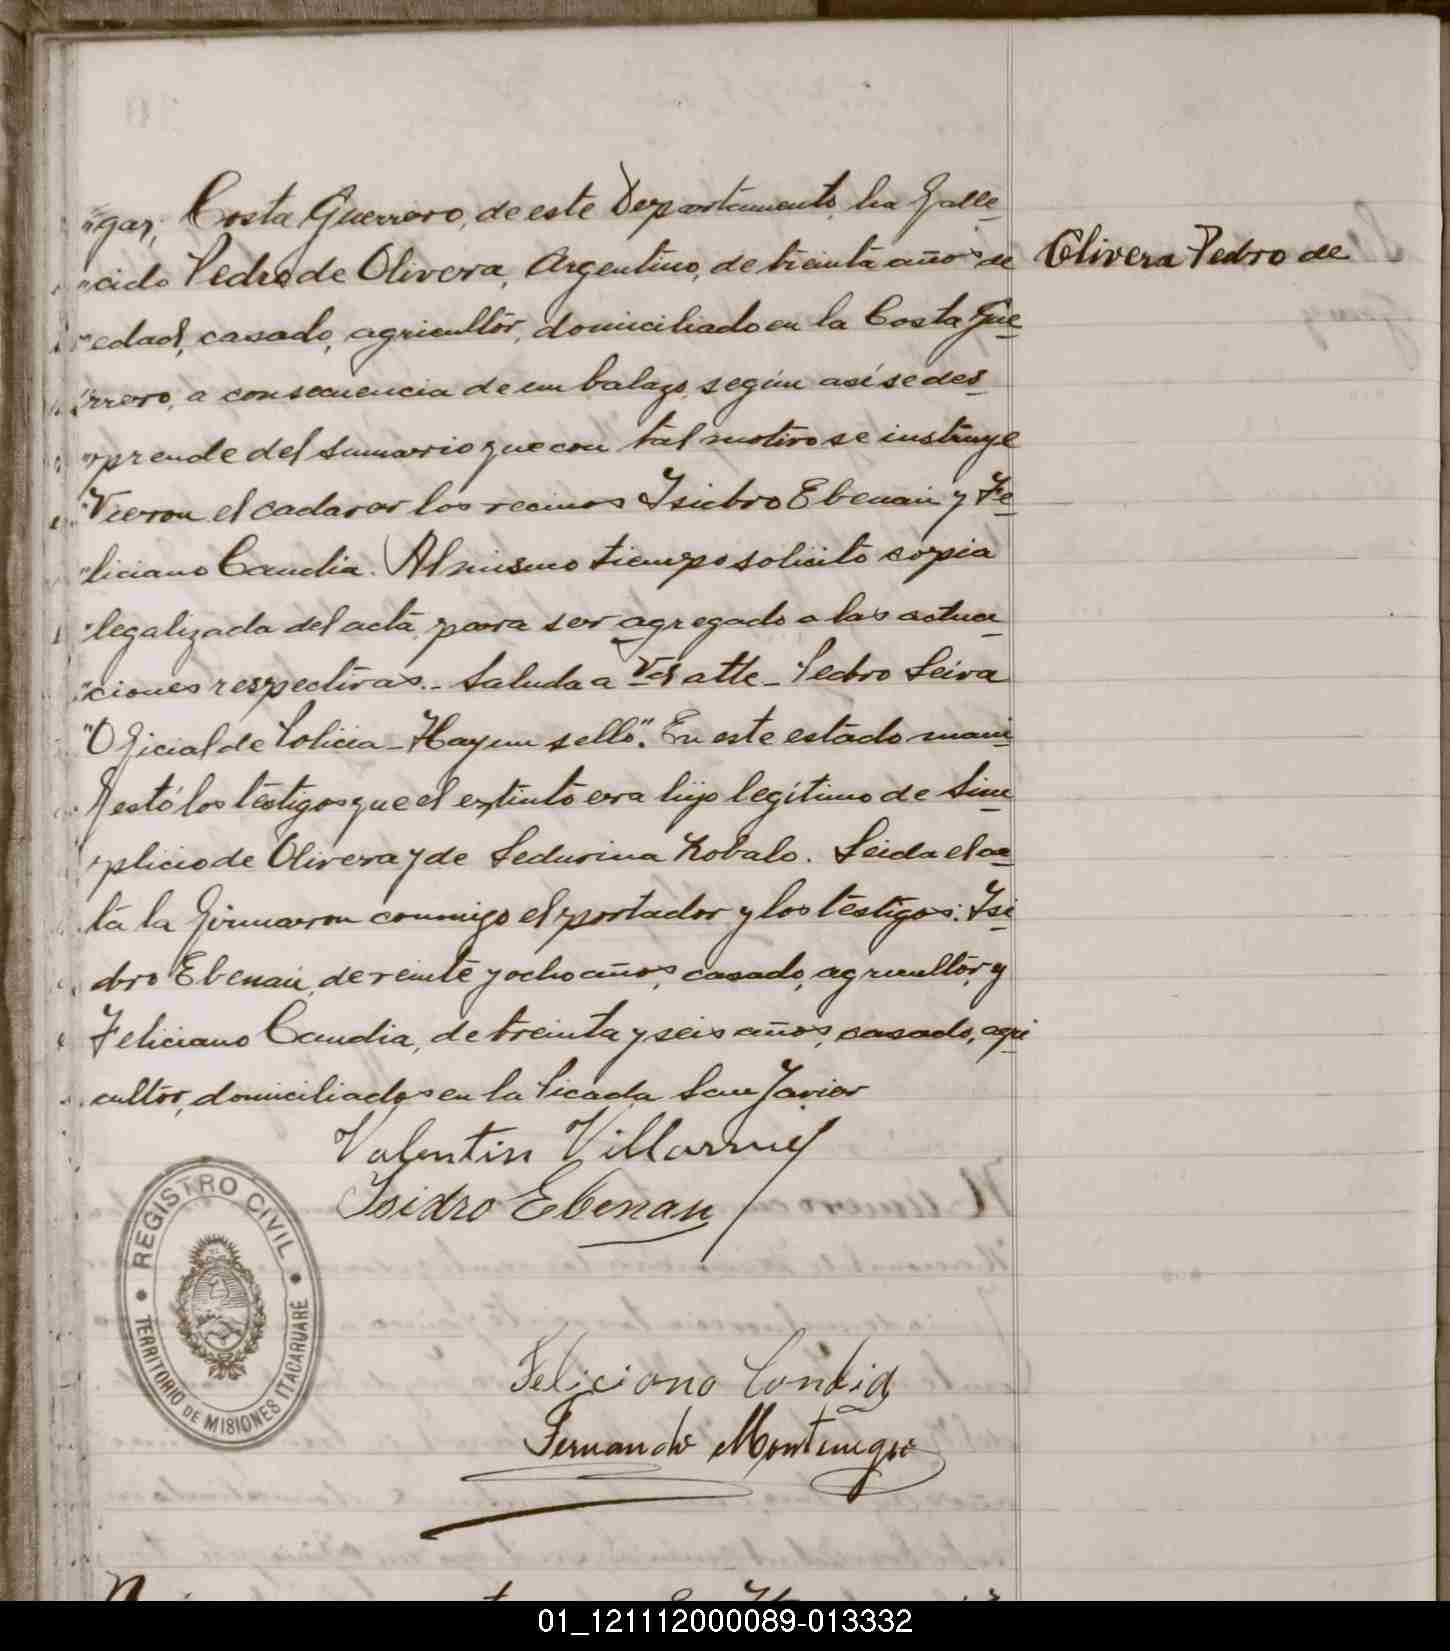 "gar, Costa Guerrero, de este Departamento, ha falle
"cido Pedro de Olivera, Argentino, de treinta años de
Olivera Pedro de
"edad, casado, agricultor, domiciliado en la Costa Gue
"rrero, a consecuencia de un balazo, según así se des
"prende del sumario que con tal motivo se instruye
"Vieron el cadaver los vecinos Isidro Ebenau y Fe
"liciano Candia. Al mismo tiempo solicito copia
"legalizada del acta para ser agregado a las actua
"ciones respectivas.- Saluda a Vd atte - Pedro Leiva
"Oficial de Policia - Hay un sello". En este estado mani
festó los testigos que el extinto era hijo legítimo de Sim
plicio de Olivera y de Sedurina Robalo. Leida el ac
ta la firmaron conmigo el portador y los testigos: Isi
dro Ebenau, de veinte y ocho años, casado, agricultor, y
Feliciano Candia, de treinta y seis años, casado, agri
cultor, domiciliados en la Picada San Javier
Valentin Villarruel
Isidro Ebenau
REGISTRO CIVIL
TERRITORIO DE MISIONES ITACARUARE
Feliciano Candia
Fernando Montenegro
01_121112000089-013332